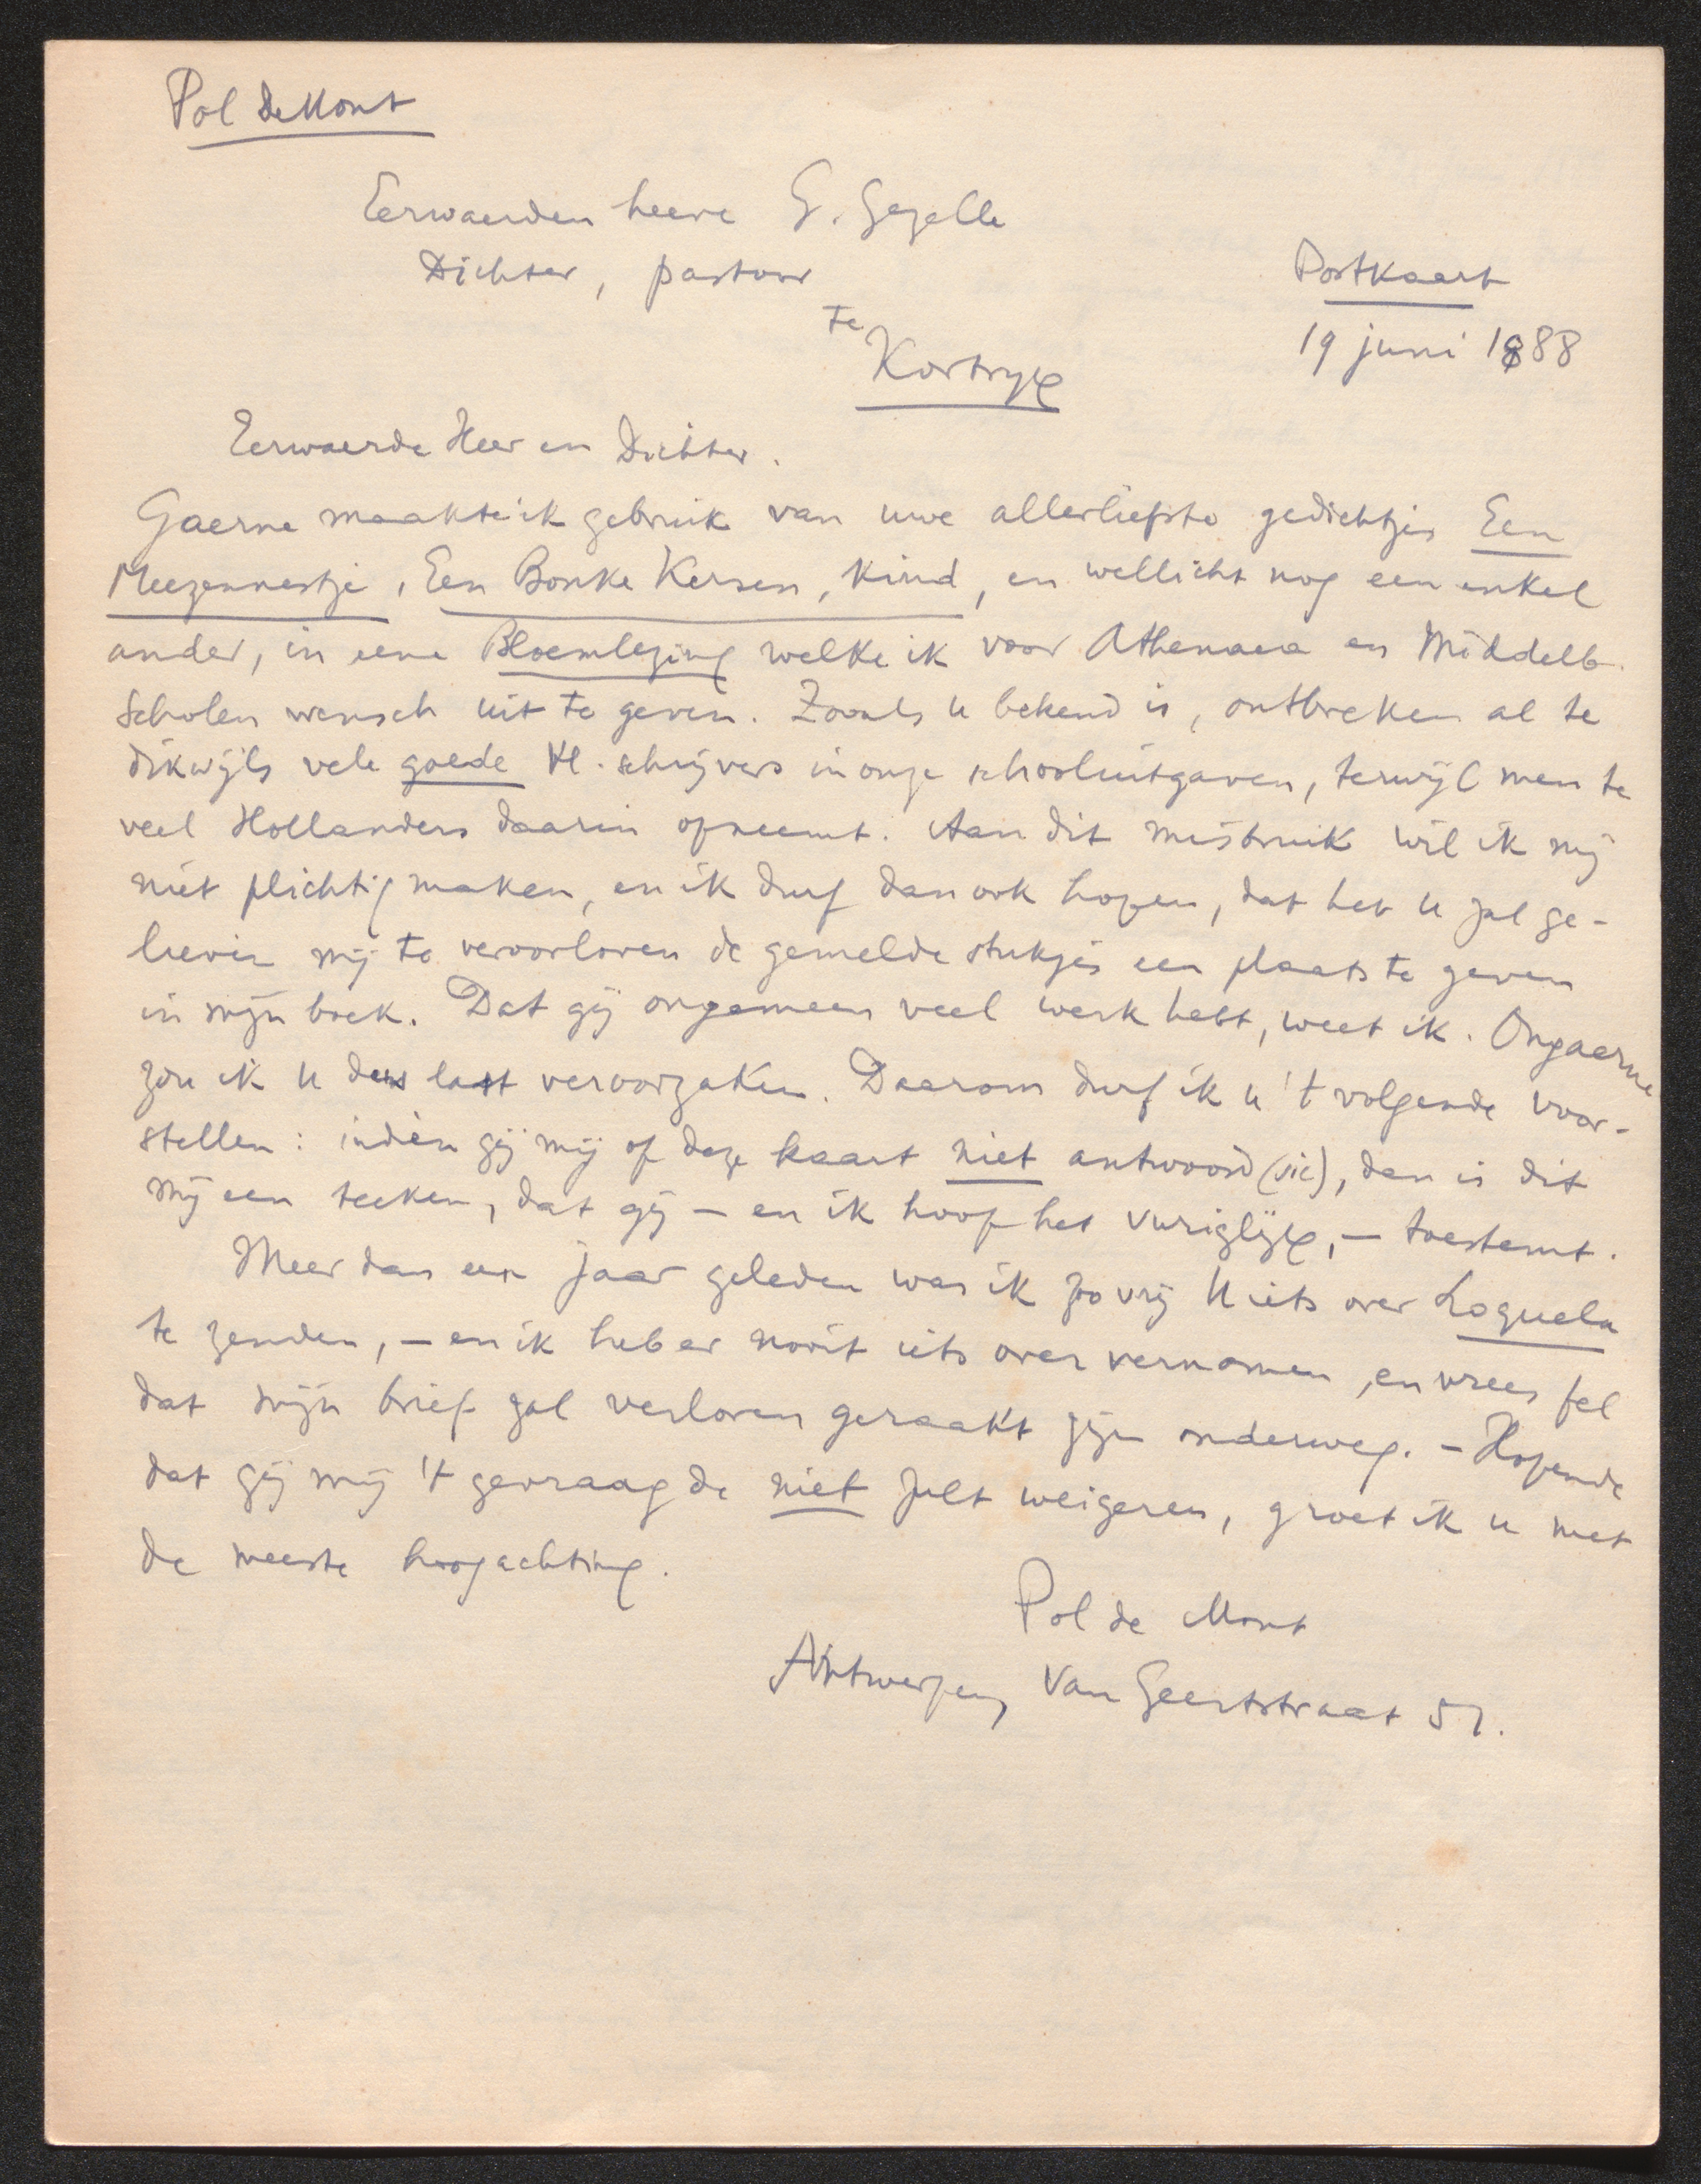 Pol de Mont
Eerwaerden heere G. Gezelle
Dichter, pastoor
Postkaart
te
19 juni 1888
Kortryx
Eerwaerde Heer en Dichter.
Gaerne maakte ik gebruik van uwe allerliefste gedichtjes Een
Meezennestje, Een Bonke Kersen, Kind, en wellicht nog een enkel
ander, in eene Bloemlezing welke ik voor Athenaea en Middelb.
Scholen wensch uit te geven. Zooals u bekend is, ontbreken al te
dikwijls vele goede Vl. schrijvers in onze schooluitgaven, terwijl men te
veel Hollanders daarin opneemt. Aan dit misbruik wil ik mij
niet plichtig maken, en ik durf dan ook hopen, dat het U zal ge-
lieven mij te veroorloven de gemelde stukjes een plaats te geven
in mijn boek. Dat gij ongemeen veel werk hebt, weet ik. Ongaerne
zou ik U dus last veroorzaken. Daarom durf ik u 't volgende voor-
stellen: indien gij mij op deze kaart niet antwoord (sic), dan is dit
mij een teeken, dat gij – en ik hoop het vuriglijx, – toestemt.
Meer dan een jaar geleden was ik zoo vrij U iets over Loquela
te zenden, – en ik heb er nooit iets over vernomen, en vrees fel
dat mijn brief zal verloren geraakt zijn onderweg. – Hopende
dat gij mij 't gevraagde niet zult weigeren, groet ik u met
de meeste hoogachting.
Pol de Mont
Antwerpen, Van Geertstraat 51.